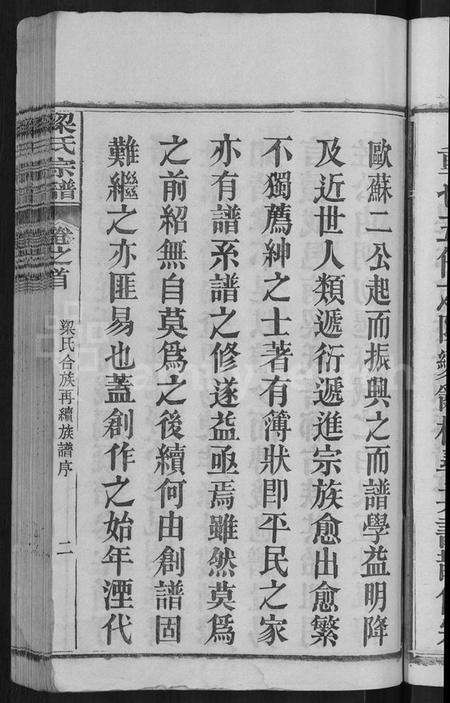 歐蘇二公起而振興之而譜學益明降
及近世人類遞衍遞進宗族愈出愈繁
不獨薦紳之士著有簿狀即平民之家
亦有譜系譜之修遂益亟焉雖然莫為
之前紹無自莫為之後續何由創譜固
難繼之亦匪易也蓋創作之始年湮代
梁氏宗譜
卷之首
梁氏合族再續族譜序
二